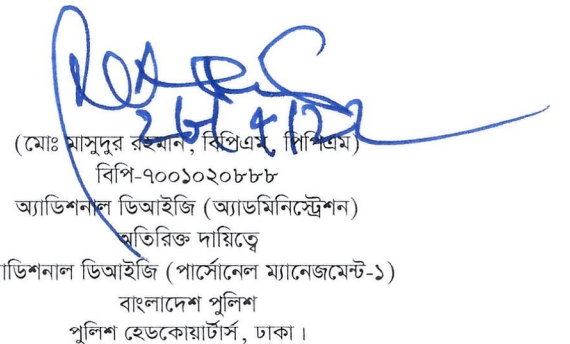 (মোঃ মাসুদুর রহমান, বিপিএম, পিপিএম)
বিপি-৭০০১০২০৮৮৮
অ্যাডিশনাল ডিআইজি (অ্যাডমিনিস্ট্রেশন)
অতিরিক্ত দায়িত্বে
াডিশনাল ডিআইজি (পার্সোনেল ম্যানেজমেন্ট-১)
বাংলাদেশ পুলিশ
পুলিশ হেডকোয়ার্টার্স, ঢাকা।